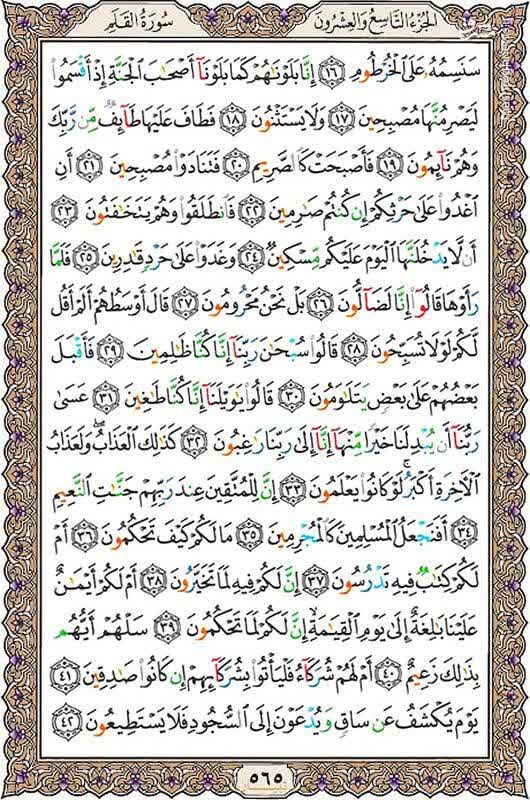 الجزء التاسع والعشرون
سورة القلم
سَنَسِمُهُۥ عَلَى ٱلۡخُرۡطُومِ ١٦ إِنَّا بَلَوۡنَٰهُمۡ كَمَا بَلَوۡنَآ أَصۡحَٰبَ ٱلۡجَنَّةِ إِذۡ أَقۡسَمُواْ
لَيَصۡرِمُنَّهَا مُصۡبِحِينَ ١٧ وَلَا يَسۡتَثۡنُونَ ١٨ فَطَافَ عَلَيۡهَا طَآئِفٞ مِّن رَّبِّكَ
وَهُمۡ نَآئِمُونَ ١٩ فَأَصۡبَحَتۡ كَٱلصَّرِيمِ ٢٠ فَتَنَادَوۡاْ مُصۡبِحِينَ ٢١ أَنِ
ٱغۡدُواْ عَلَىٰ حَرۡثِكُمۡ إِن كُنتُمۡ صَٰرِمِينَ ٢٢ فَٱنطَلَقُواْ وَهُمۡ يَتَخَٰفَتُونَ ٢٣
أَن لَّا يَدۡخُلَنَّهَا ٱلۡيَوۡمَ عَلَيۡكُم مِّسۡكِينٞ ٢٤ وَغَدَوۡاْ عَلَىٰ حَرۡدٖ قَٰدِرِينَ ٢٥ فَلَمَّا
رَأَوۡهَا قَالُوٓاْ إِنَّا لَضَآلُّونَ ٢٦ بَلۡ نَحۡنُ مَحۡرُومُونَ ٢٧ قَالَ أَوۡسَطُهُمۡ أَلَمۡ أَقُل
لَّكُمۡ لَوۡلَا تُسَبِّحُونَ ٢٨ قَالُواْ سُبۡحَٰنَ رَبِّنَآ إِنَّا كُنَّا ظَٰلِمِينَ ٢٩ فَأَقۡبَلَ
بَعۡضُهُمۡ عَلَىٰ بَعۡضٖ يَتَلَٰوَمُونَ ٣٠ قَالُواْ يَٰوَيۡلَنَآ إِنَّا كُنَّا طَٰغِينَ ٣١ عَسَىٰ
رَبُّنَآ أَن يُبۡدِلَنَا خَيۡرٗا مِّنۡهَآ إِنَّآ إِلَىٰ رَبِّنَا رَٰغِبُونَ ٣٢ كَذَٰلِكَ ٱلۡعَذَابُۖ وَلَعَذَابُ
ٱلۡأٓخِرَةِ أَكۡبَرُۚ لَوۡ كَانُواْ يَعۡلَمُونَ ٣٣ إِنَّ لِلۡمُتَّقِينَ عِندَ رَبِّهِمۡ جَنَّٰتِ ٱلنَّعِيمِ
٣٤ أَفَنَجۡعَلُ ٱلۡمُسۡلِمِينَ كَٱلۡمُجۡرِمِينَ ٣٥ مَا لَكُمۡ كَيۡفَ تَحۡكُمُونَ ٣٦ أَمۡ
لَكُمۡ كِتَٰبٞ فِيهِ تَدۡرُسُونَ ٣٧ إِنَّ لَكُمۡ فِيهِ لَمَا تَخَيَّرُونَ ٣٨ أَمۡ لَكُمۡ أَيۡمَٰنٌ
عَلَيۡنَا بَٰلِغَةٌ إِلَىٰ يَوۡمِ ٱلۡقِيَٰمَةِ إِنَّ لَكُمۡ لَمَا تَحۡكُمُونَ ٣٩ سَلۡهُمۡ أَيُّهُم
بِذَٰلِكَ زَعِيمٌ ٤٠ أَمۡ لَهُمۡ شُرَكَآءُ فَلۡيَأۡتُواْ بِشُرَكَآئِهِمۡ إِن كَانُواْ صَٰدِقِينَ ٤١
يَوۡمَ يُكۡشَفُ عَن سَاقٖ وَيُدۡعَوۡنَ إِلَى ٱلسُّجُودِ فَلَا يَسۡتَطِيعُونَ ٤٢
٥٦٥